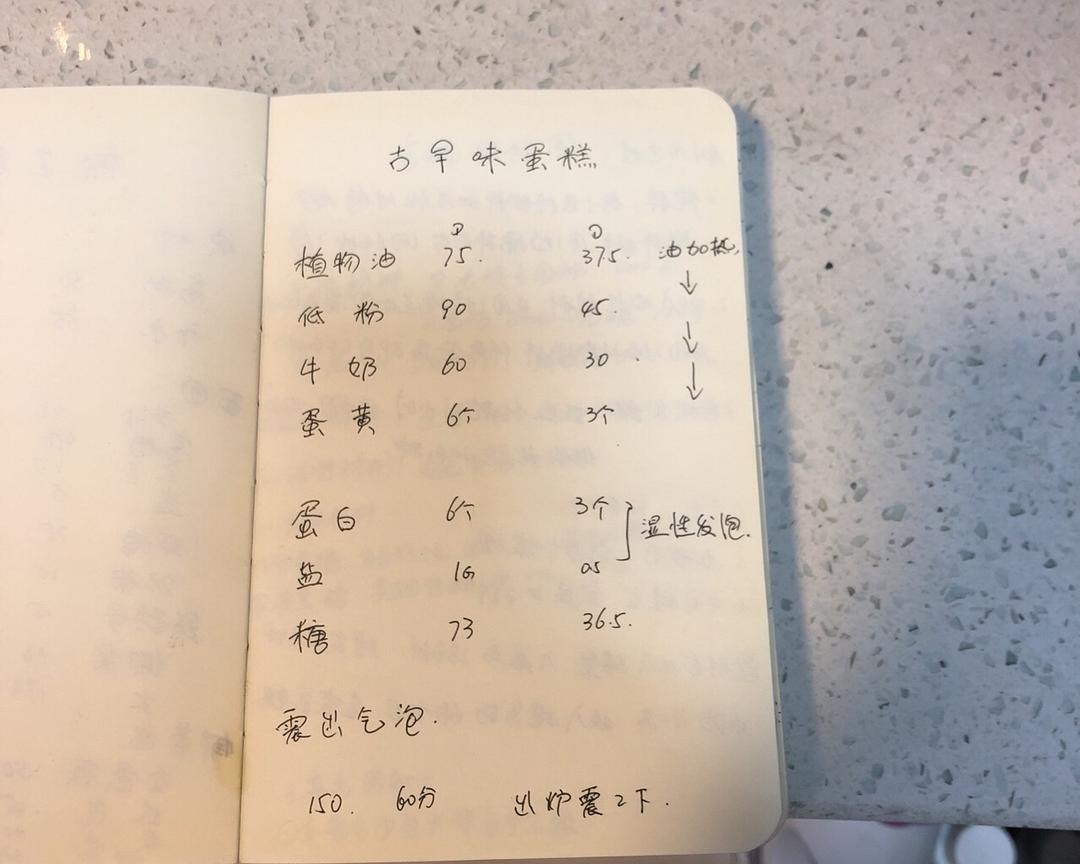 古早味蛋糕
植物油 75. 37.5. 油加热
低粉 90 45.
牛奶 60 30.
蛋黄 6个 3个
蛋白 6个 3个 湿性发泡.
盐 1G 0.5
糖 73 36.5.
震出气泡.
150. 60分 出炉震2下.